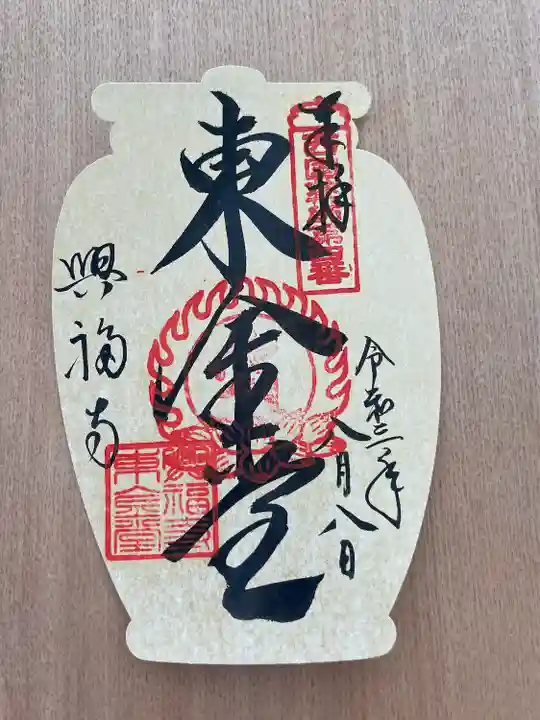 奉拝
令和三年
八月八日
東金堂
興福寺
興福寺
東金堂